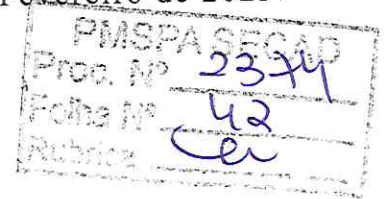 PMSPA SECAD
Proc. Nº 2374
Folha Nº 42
Rubrica